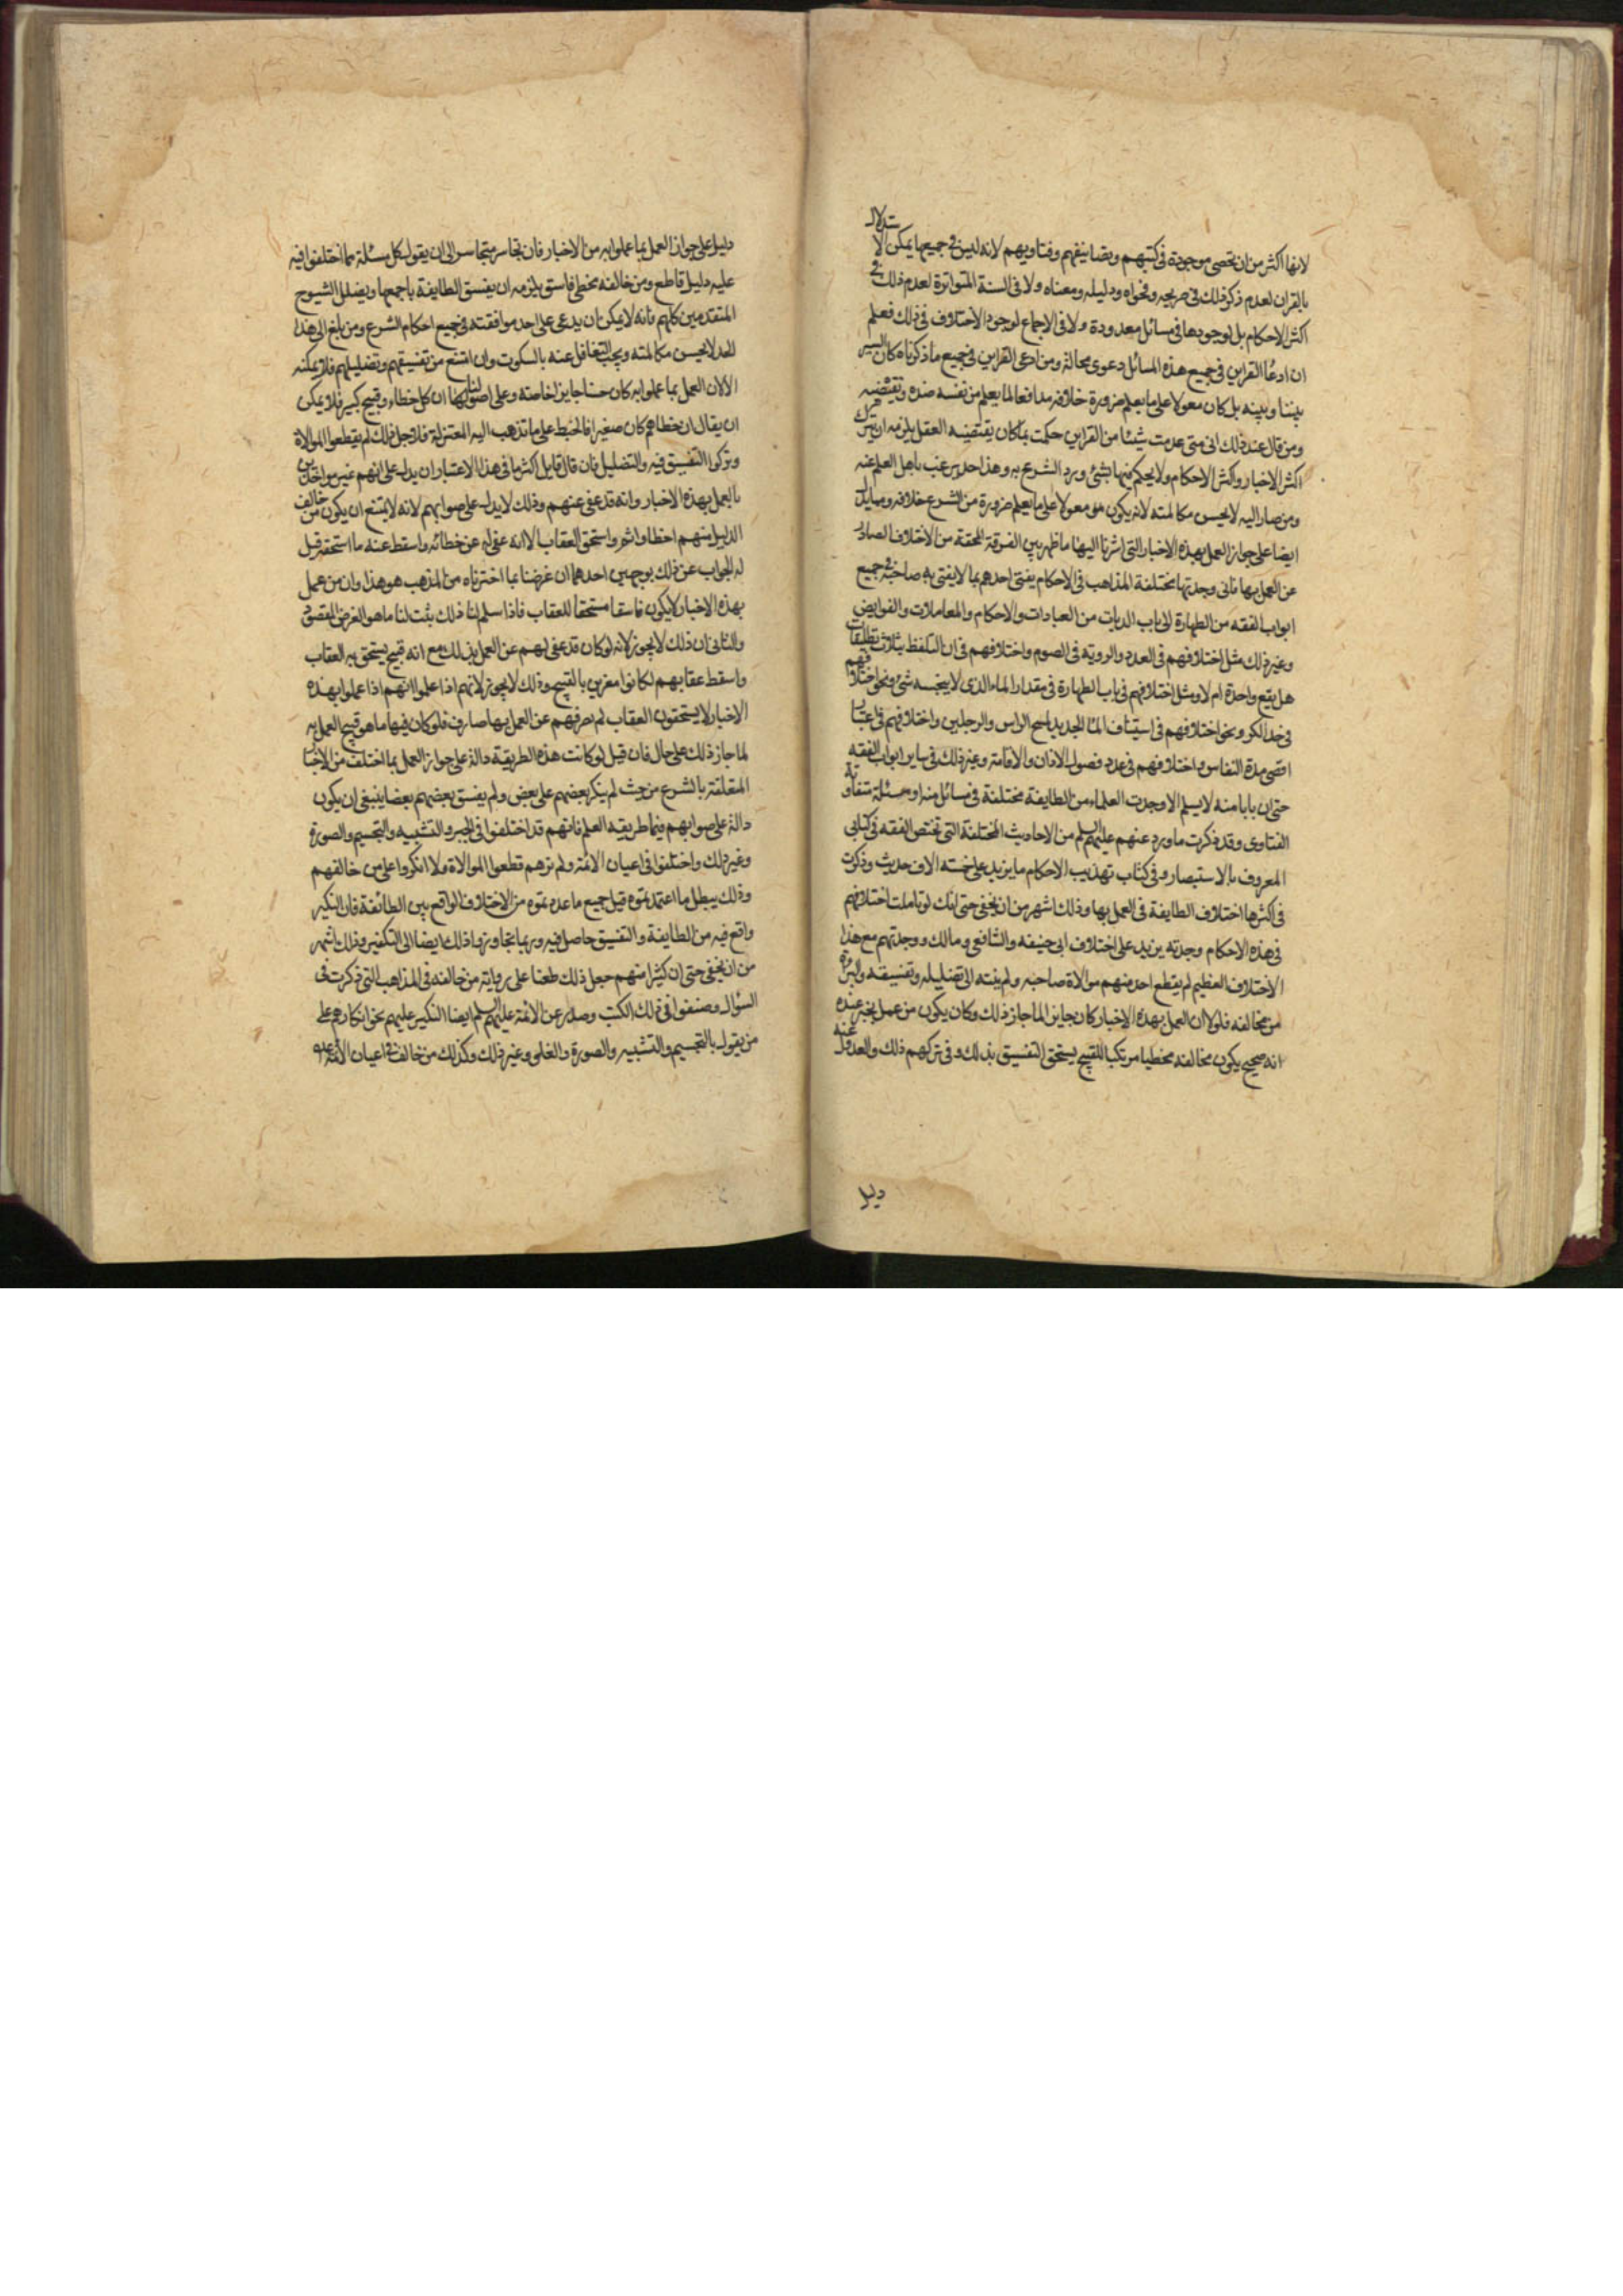 لانها اكثر من ان تحصى موجودة فى كتبهم وتصانيفهم وفتاويهم لانه ليس فى جميعها يمكن الا
ستدلال
بالقران لعدم ذكر ذلك فى صريحه وفحواه ودليله ومعناه ولا فى السنة المتواترة لعدم ذلك فى
اكثر الاحكام بل لوجودها فى مسائل معدودة ولا فى الاجماع لوجود الاختلاف فى ذلك فعلم
ان ادعا القراين فى جميع هذه المسائل دعوى محالة ومن ادعى القراين فى جميع ما ذكرناه كان السبر
بيننا وبينه بل كان معولا على ما يعلم ضرورة خلافه مدافعا لما يعلم من نفسه ضده ونقيضه
ومن قال عند ذلك انى متى عدمت شيئا من القراين حكمت بما كان يقتضيه العقل يلزمه ان يترك
اكثر الاخبار واكثر الاحكام ولا يحكم فيها بشئ ورد الشرع به وهذا حد يرغب باهل العلم عنه
ومن صار اليه لا يحسن مكالمته لانه يكون معولا على ما يعلم ضرورة من الشرع خلافه ومما يدل
ايضا على جواز العمل بهذه الاخبار التى اشرنا اليها ما ظهر بين الفرقة المحقة من الاختلاف الصادر
عن العمل بها فانى وجدتها مختلفة المذاهب فى الاحكام يفتى احدهم بما لا يفتى به صاحبه فى جميع
ابواب الفقه من الطهارة الى باب الديات من العبادات والاحكام والمعاملات والفرايض
وغير ذلك مثل اختلافهم فى العدد والروية فى الصوم واختلافهم فى ان التلفظ بثلاث تطليقات
هل يقع واحدة ام لا ومثل اختلافهم فى باب الطهارة فى مقدار الماء الذى لا ينجسه شئ ونحو اختلافهم
فى حد الكر ونحو اختلافهم فى استيناف الماء الجديد لمسح الراس والرجلين واختلافهم فى اعتبار
اقصى مدة النفاس واختلافهم فى عدد فصول الاذان والاقامة وغير ذلك فى ساير ابواب الفقه
حتى ان بابا منه لا يسلم الا وجدت العلماء من الطايفة مختلفة فى مسائل منه او مسئلة متفاوتة
الفتاوى وقد ذكرت ما ورد عنهم عليهم السلم من الاحاديث المختلفة التى تختص الفقه فى كتابى
المعروف بالاستبصار وفى كتاب تهذيب الاحكام ما يزيد على خمسة الاف حديث وذكرت
فى اكثرها اختلاف الطايفة فى العمل بها وذلك اشهر من ان يخفى حتى انك لو تاملت اختلافهم
فى هذه الاحكام وجدته يزيد على اختلاف ابى حنيفه والشافعى ومالك ووجدتهم مع هذا
الاختلاف العظيم لم يقطع احد منهم موالاة صاحبه ولم ينته الى تضليله وتفسيقه والبراءة
من مخالفه فلولا ان العمل بهذه الاخبار كان جايزا لما جاز ذلك وكان يكون من عمل بخبر عنده
انه صحيح يكون مخالفه مخطيا مرتكبا للقبيح يستحق التفسيق بذلك وفى تركهم ذلك والعدول عنه
دليل
دليل على جواز العمل بما عملوا به من الاخبار فان تجاسر متجاسر الى ان يقول كل مسئلة مما اختلفوا فيه
عليه دليل قاطع ومن خالفه مخطئ فاسق يلزمه ان يفسق الطايفة باجمعها ويضلل الشيوخ
المتقدمين كلهم فانه لا يمكن ان يدعى على احد موافقته فى جميع احكام الشرع ومن بلغ الى هذا
الحد لا يحسن مكالمته ويجب التغافل عنه بالسكوت وان امتنع من تفسيقهم وتضليلهم فلا يمكنه
الا لان العمل بما عملوا به كان حسنا جايزا خاصة وعلى اصولنا ان كل خطاء وقبيح كبير فلا يمكن
ان يقال ان خطاهم كان صغيرا فانحبط على ما تذهب اليه المعتزلة فلاجل ذلك لم يقطعوا الموالاة
وتركوا التفسيق فيه والتضليل فان قال قايل اكثر ما فى هذا الاعتبار ان يدل على انهم غير مواخذين
بالعمل بهذه الاخبار وانه قد عفى عنهم وذلك لا يدل على صوابهم لانه لا يمتنع ان يكون من خالف
الدليل منهم اخطا واثم واستحق العقاب الا انه عفى له عن خطائه واسقط عنه ما استحقه قيل
له الجواب عن ذلك بوجهين احدهما ان غرضنا بما اخترناه من المذهب هو هذا وان من عمل
بهذه الاخبار لا يكون فاسقا مستحقا للعقاب فاذا سلم لنا ذلك ثبت لنا ما هو الغرض المقصود
والثانى ان ذلك لا يجوز لانه لو كان قد عفى لهم عن العمل بذلك مع انه قبيح يستحق به العقاب
واسقط عقابهم لكانوا مغرين بالقبيح وذلك لا يجوز لانهم اذا علموا انهم اذا عملوا بهذه
الاخبار لا يستحقون العقاب لم يصرفهم عن العمل بها صارف فلو كان فيها ما هو قبيح العمل به
لما جاز ذلك على حال فان قيل لو كانت هذه الطريقة دالة على جواز العمل بما اختلف من الاخبار
المتعلقة بالشرع من حيث لم ينكر بعضهم على بعض ولم يفسق بعضهم بعضا ينبغى ان يكون
دالة على صوابهم فيما طريقه العلم فانهم قد اختلفوا فى الجبر والتشبيه والتجسيم والصورة
وغير ذلك واختلفوا فى اعيان الائمة ولم نرهم قطعوا الموالاة ولا انكروا على من خالفهم
وذلك يبطل ما اعتمدتموه قيل جميع ما عددتموه من الاختلاف الواقع بين الطائفة فان النكير
واقع فيه من الطايفة والتفسيق حاصل فيه وربما تجاوزوا ذلك ايضا الى التكفير وذلك اشهر
من ان يخفى حتى ان كثيرا منهم جعل ذلك طعنا على رواية من خالفه فى المذاهب التى ذكرت فى
السؤال وصنفوا فى ذلك الكتب وصدر عن الائمة عليهم السلم ايضا النكير عليهم نحو انكارهم على
من يقول بالتجسيم والتشبيه والصورة والغلو وغير ذلك وكذلك من خالف فى اعيان الائمة